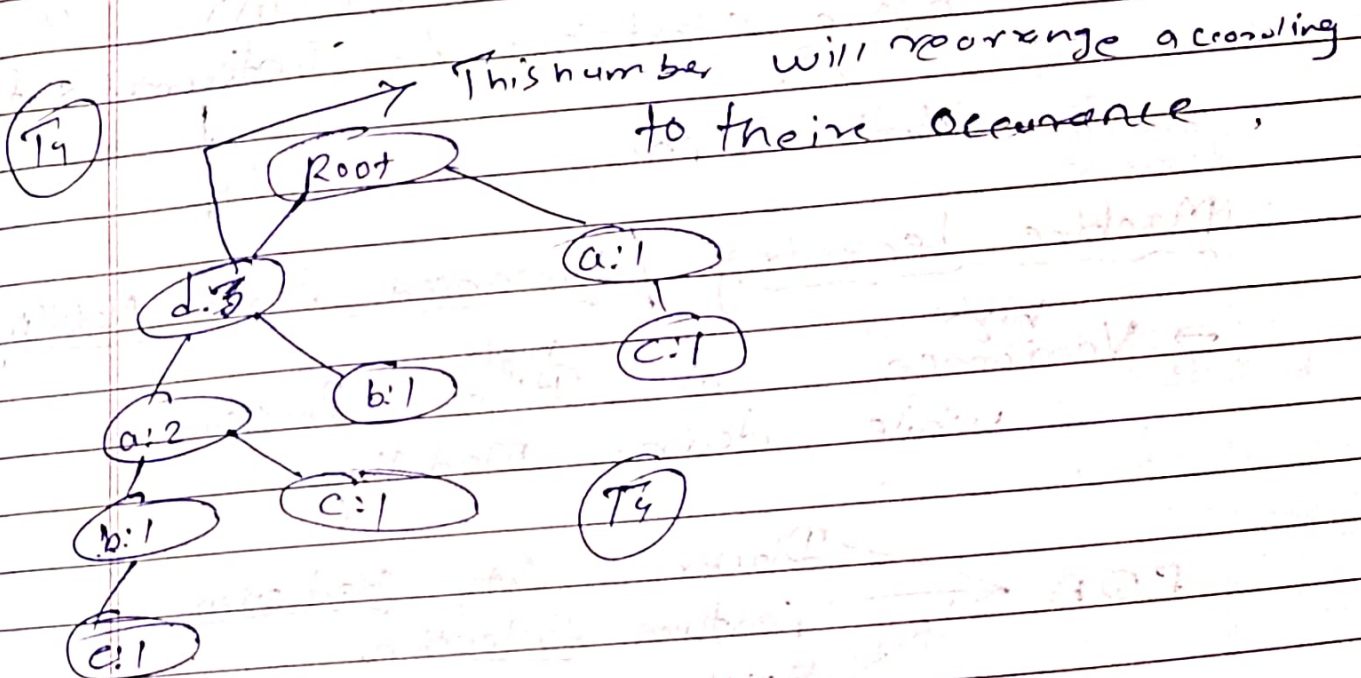 This number will rearrange accroding
to theire occurance,
T4
Root
a:1
d:3
c:1
b:1
a:2
c:1
T4
b:1
c:1